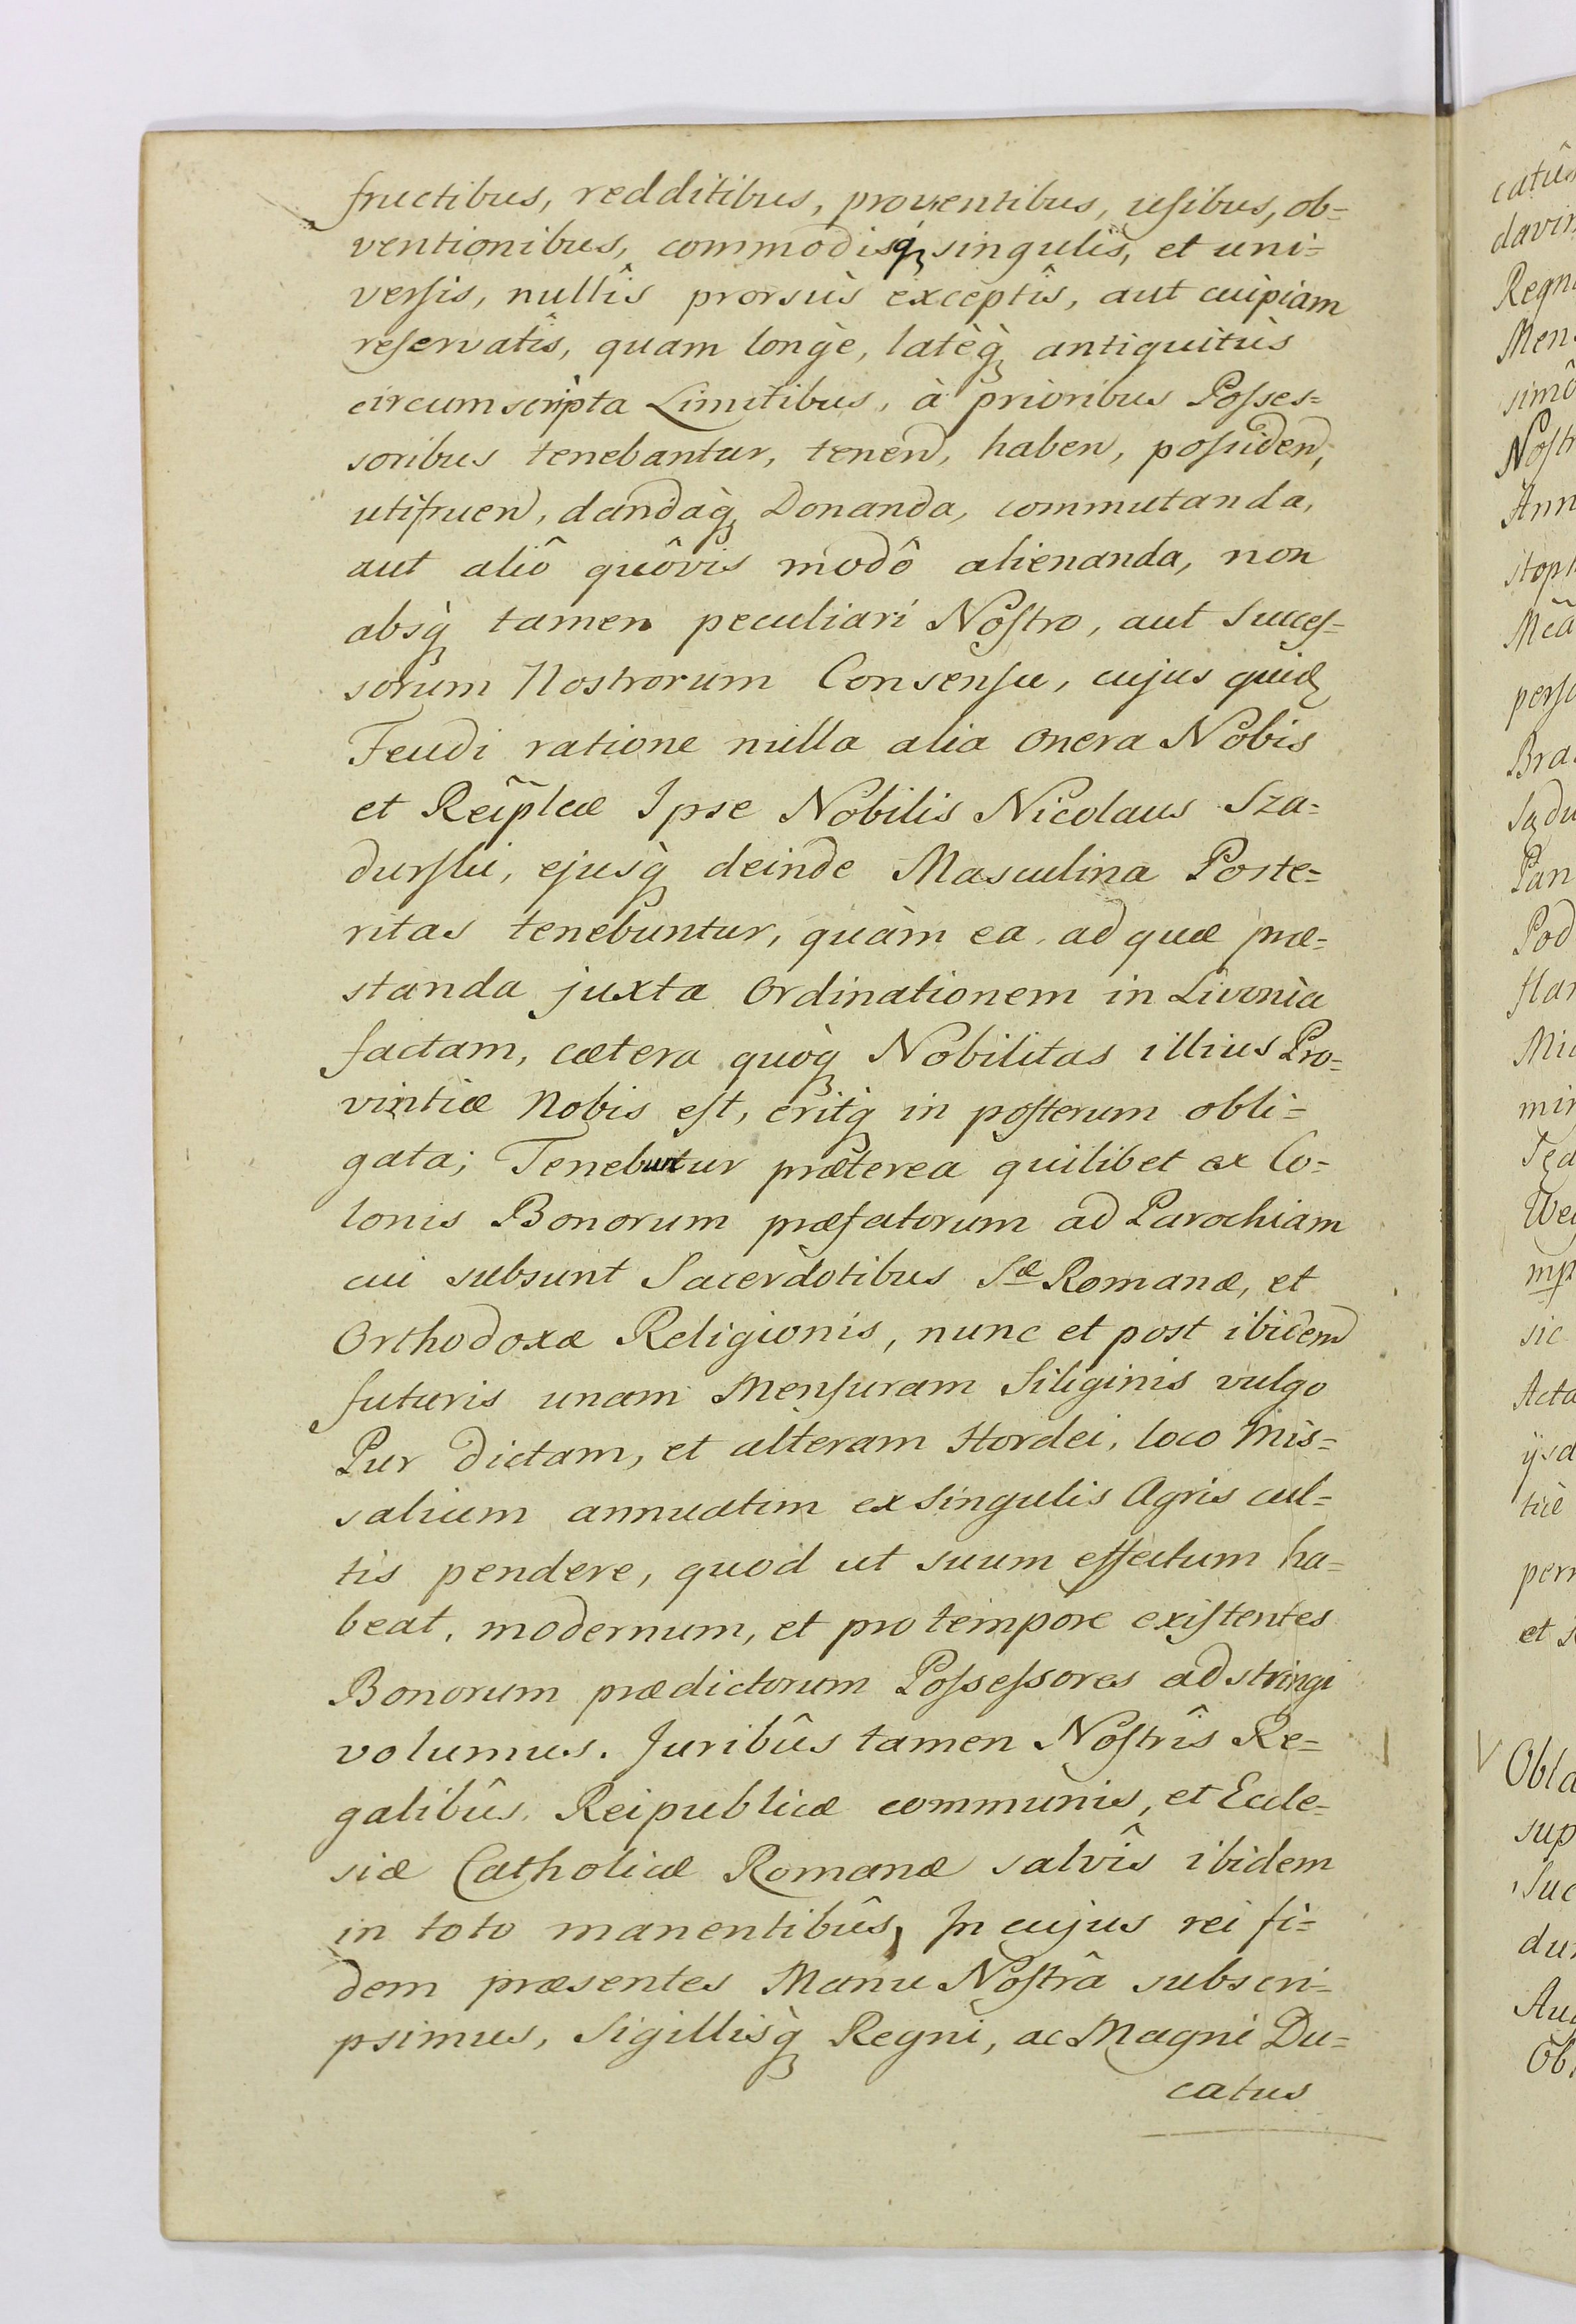 fructibus, redditibus, proventibus, usibus, ob=
ventionibus, commodisq́ singulis, et uni=
versis, nullîs prorsùs exceptîs, aut cuipiam
reservatîs, quam longè, latèq̀ antiquitùs
circumscripta Limitibus, à prioribus Posses=
soribus tenebantur, tenen, haben, possiden,
utifruen, dandaq̀ Donanda, commutanda,
aut aliô quôvis modô alienanda, non
absq̀ tamen peculiari Nostro, aut Succes=
sorum Nostrorum Consensu, cujus quid
Feudi ratione nulla alia onera Nobis
et Reip̃lcæ Ipse Nobilis Nicolaus Sza=
durski, ejusq̀ deinde Masculina Poste=
ritas tenebuntur, quàm ea ad quæ præ=
standa juxta Ordinationem in Livonia
factam, cætera quoq̀ Nobilitas illius Pro=
vintiæ Nobis est, eritq̀ in posterum obli=
gata; Tenebuntur præterea quilibet ex Co=
lonis Bonorum præfatorum ad Parochiam
cui subsunt Sacerdotibus Sæ Romanæ, et
Orthodoxæ Religionis, nunc et post ibidem
futuris unam Mensuram Siliginis vulgo
Pur dictam, et alteram Hordei, loco Mis=
salium annuatim ex singulis Agris cul=
tis pendere, quod ut suum effectum ha=
beat, modernum, et pro tempore existentes
Bonorum prædictorum Possessores adstringi
volumus. Juribûs tamen Nostrîs Re=
galibûs, Reipublicæ communis, et Eccle=
siæ Catholicæ Romanæ salvîs ibidem
in toto manentibûs, In cujus rei fi=
dem præsentes Manu Nostrâ subscri=
psimus, Sigillisq̀ Regni, ac Magni Du=
catus